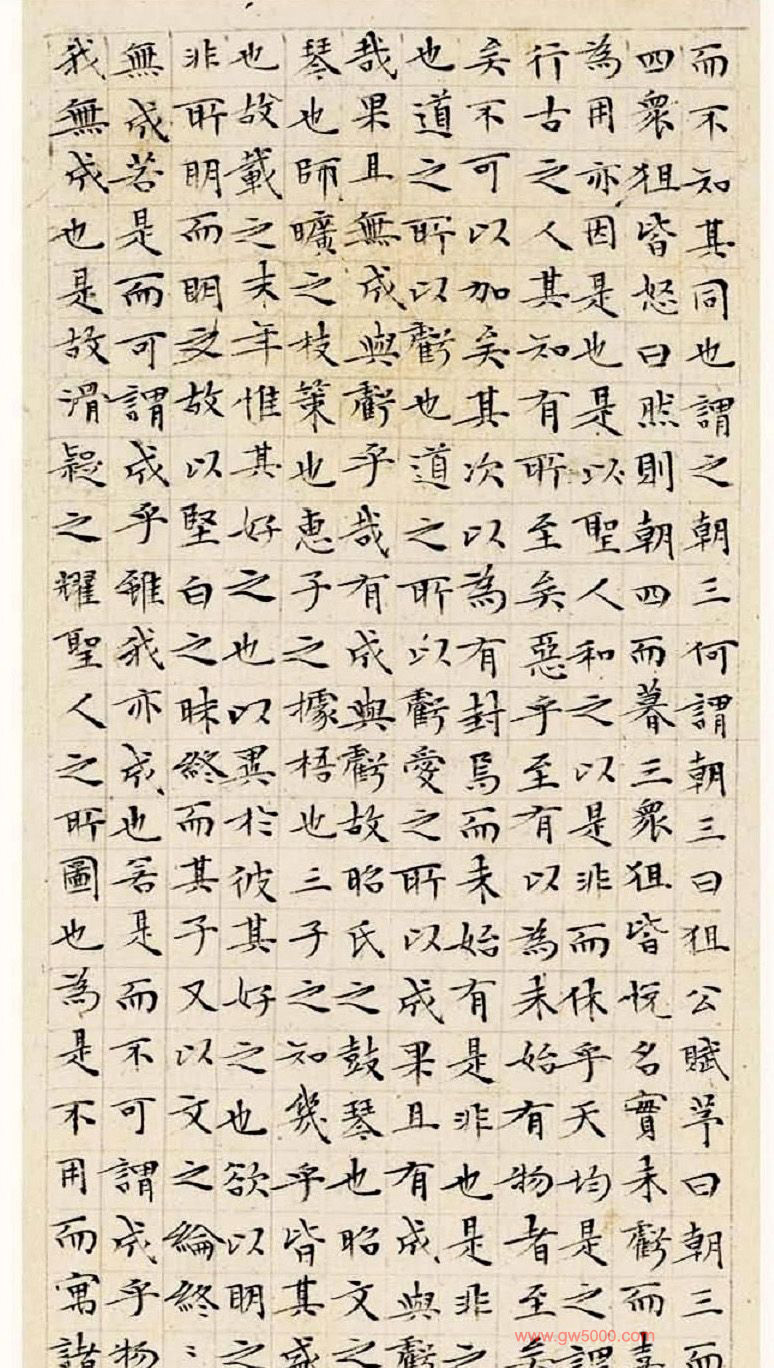 而不知其同也謂之朝三何謂朝三曰狙公賦芧曰朝三而
四衆狙皆怒曰然則朝四而暮三衆狙皆悅名實未虧而喜
為用亦因是也是以聖人和之以是非而休乎天均是之謂
行古之人其知有所至矣惡乎至有以為未始有物者至矣
矣不可以加矣其次以為有封焉而未始有是非也是非之
也道之所以虧也道之所以虧愛之所以成果且有成與虧
哉果且無成與虧乎哉有成與虧故昭氏之鼓琴也昭文之
琴也師曠之枝策也惠子之據梧也三子之知幾乎皆其盛
也故載之末年惟其好之也以異於彼其好之也欲以明之
非所明而明之故以堅白之昧終而其子又以文之綸終〻
無成若是而可謂成乎雖我亦成也若是而不可謂成乎物
我無成也是故滑疑之耀聖人之所圖也為是不用而寓諸
www.gw5000.com